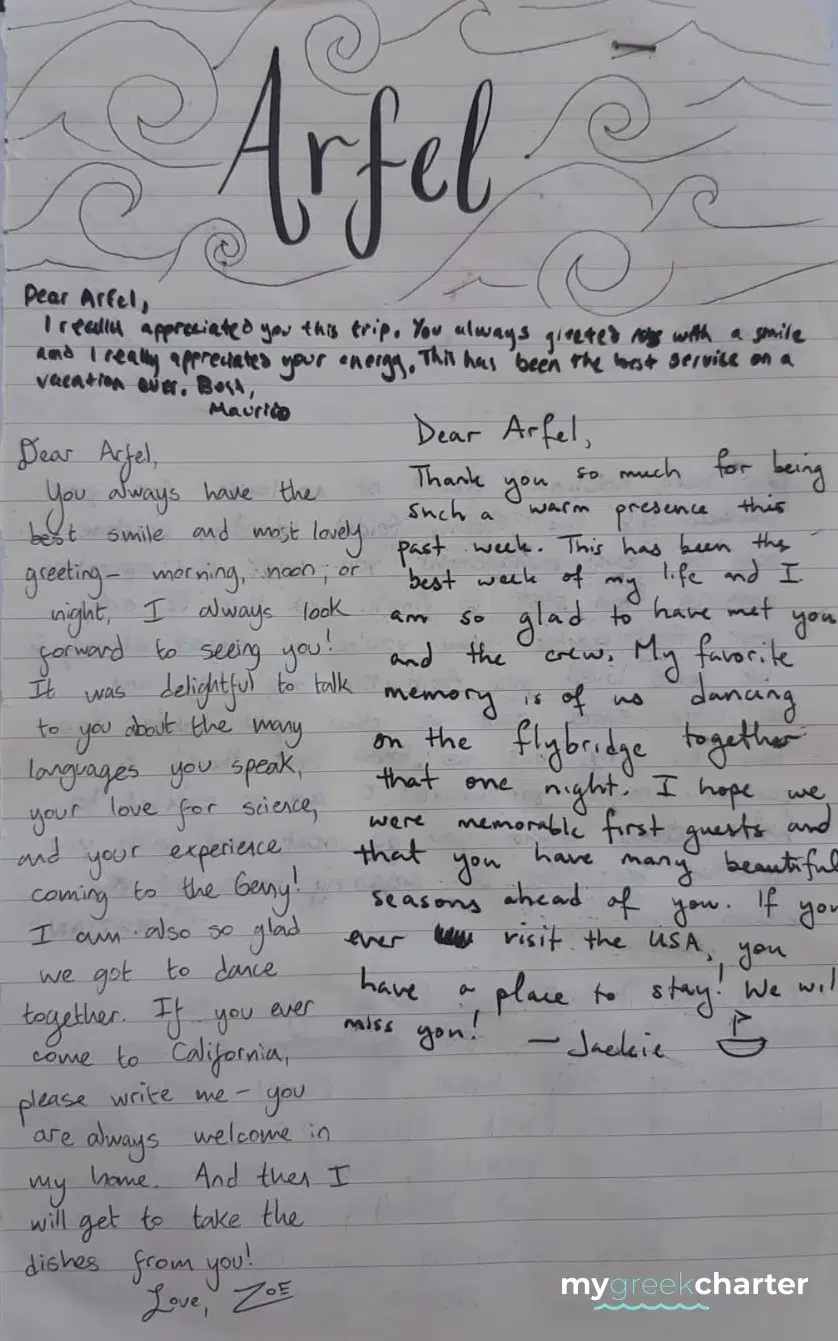 Arfel
Dear Arfel,
I really appreciated you this trip. You always greeted with a smile
and I really appreciated your energy. This has been the best service on a
vacation ever. Best,
Maurico
Dear Arfel,
You always have the
best smile and most lovely
greeting— morning, noon, or
night, I always look
forward to seeing you!
It was delightful to talk
to you about the many
languages you speak,
your love for science,
and your experience
coming to the Genny!
I am also so glad
we got to dance
together. If you ever
come to California,
please write me — you
are always welcome in
my home. And then I
will get to take the
dishes from you!
Love, ZOE
Dear Arfel,
Thank you so much for being
such a warm presence this
past week. This has been the
best week of my life and I
am so glad to have met you
and the crew. My favorite
memory is of us dancing
on the flybridge together
that one night. I hope we
were memorable first guests and
that you have many beautiful
seasons ahead of you. If you
ever visit the USA, you
have a place to stay! We will
miss you!
— Jackie
mygreekcharter